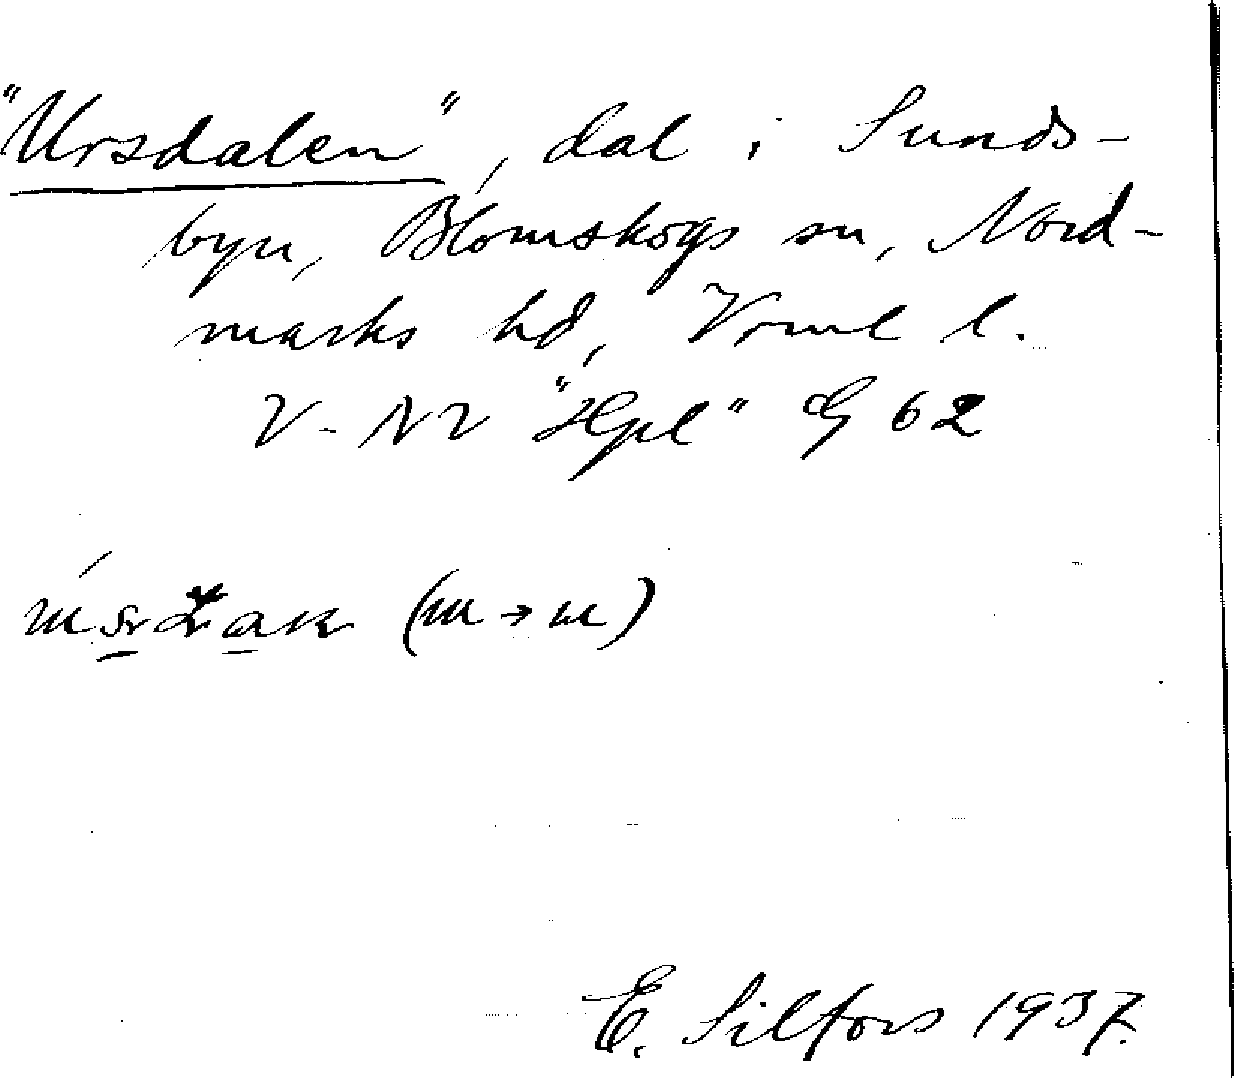 "Ursdalen", dal i Sunds-
byn, Blomskogs sn, Nord-
marks hd, Vrml l.
V-NV "Hpl" G 62
E. Silfors 1937.